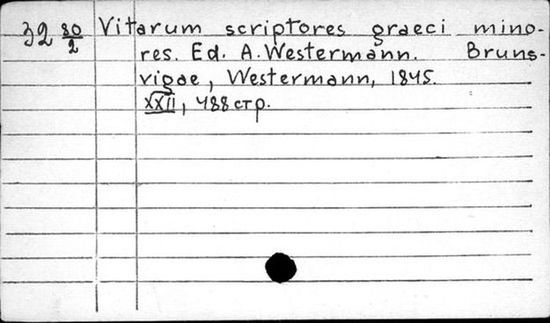 32 80/2 Vitarum scriptores graeci mino-
res. Ed. A. Westermann. Bruns-
vigae, Westermann, 1845.
XXII, 488 стр.